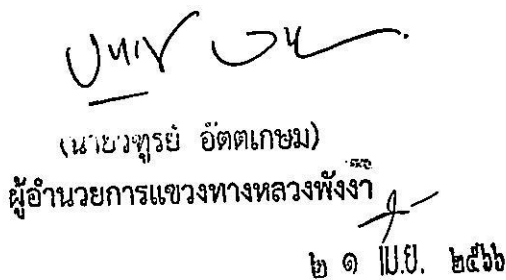 (นายวฑูรย์ อัตตเกษม)
ผู้อำนวยการแขวงทางหลวงพังงา
๒ ๑ เม.ย. ๒๕๖๖